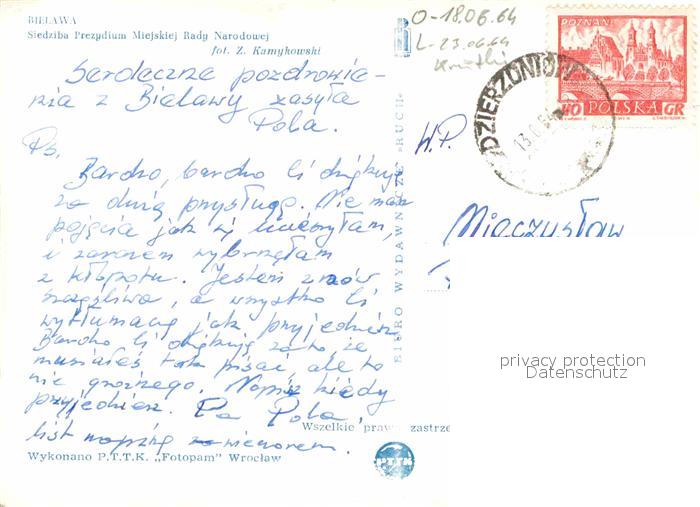 BIELAWA
Siedziba Prezydium Miejskiej Rady Narodowej
fot. Z. Kamykowski
O-18.06.64
L-23.06.64
POZNAŃ
40 POLSKA GR
DZIERŻONIÓW
Serdeczne pozdrowie-
nia z Bielawy zasyła
Pola.
Ps.
Bardzo, bardzo Ci dziękuję
za dużą przysługę. Nie masz
pojęcia jak się ucieszyłam,
i zarazem wybrnęłam
z kłopotu. Jestem znów
szczęśliwa, a wszystko Ci
wytłumaczę jak przyjedziesz
Bardzo Ci dziękuję za to, że
musiałeś tak pisać, ale to
nic groźnego. Napisz kiedy
przyjedziesz. Pa Pola,
list napiszę wieczorem.
W.P.
Mieczysław
BIURO WYDAWNICZE "RUCH"
privacy protection
Datenschutz
Wszelkie praw zastrze
Wykonano P.T.T.K. „Fotopam" Wrocław
PTTK